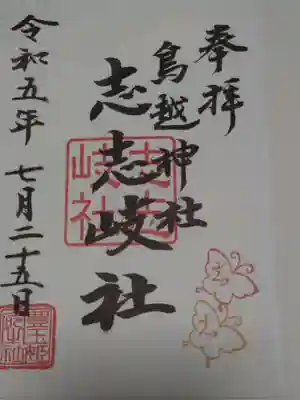 奉拝
鳥越神社
志志岐社
令和五年 七月二十五日
志志岐社